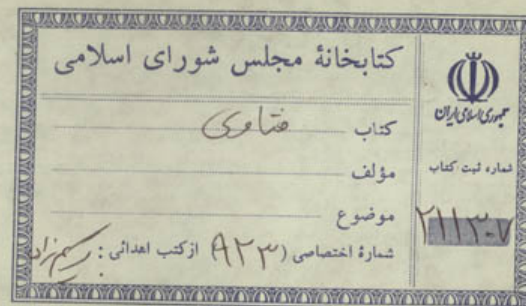 کتابخانهٔ مجلس شورای اسلامی
کتاب فتاوی
مؤلف
موضوع
شمارهٔ اختصاصی (۹۲۳) از کتب اهدائی :
جمهوری اسلامی ایران
شماره ثبت کتاب
۲۱۱۳۰۷